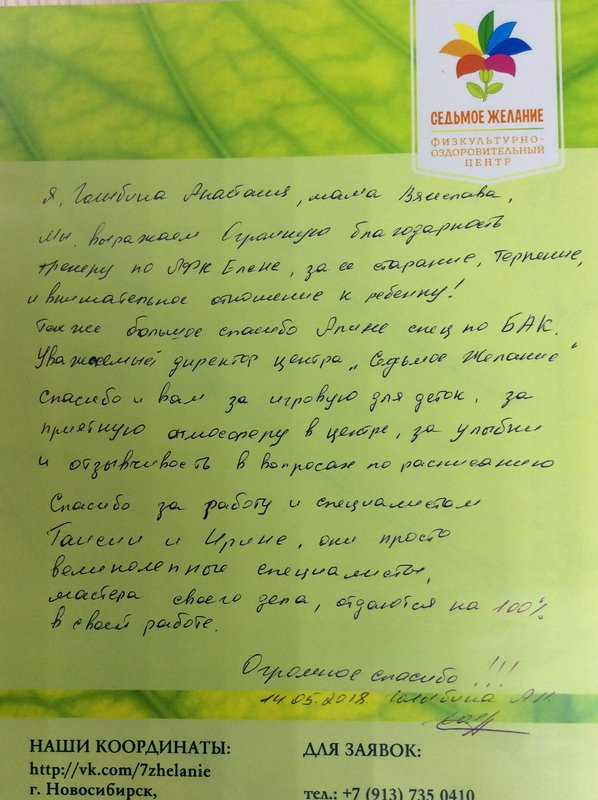 СЕДЬМОЕ ЖЕЛАНИЕ
ФИЗКУЛЬТУРНО-
ОЗДОРОВИТЕЛЬНЫЙ
ЦЕНТР
Я, Голибина Анастасия, мама Вячеслава,
Мы, выражаем Огромную благодарность
тренеру по ЛФК Елене, за ее старание, терпение,
и внимательное отношение к ребенку!
Так же большое спасибо Алине спец по БАК.
Уважаемый директор центра „Седьмое Желание"
Спасибо и вам за игровую для деток, за
приятную атмосферу в центре, за улыбки
и отзывчивость в вопросах по расписанию
Спасибо за работу и специалистам
Таисии и Ирине, они просто
великолепные специалисты,
мастера своего дела, отдаются на 100%
в своей работе.
Огромное спасибо!!!
14.05.2018 Голибина А.Н.
НАШИ КООРДИНАТЫ:
ДЛЯ ЗАЯВОК:
http://vk.com/7zhelanie
г. Новосибирск,
тел.: +7 (913) 735 0410